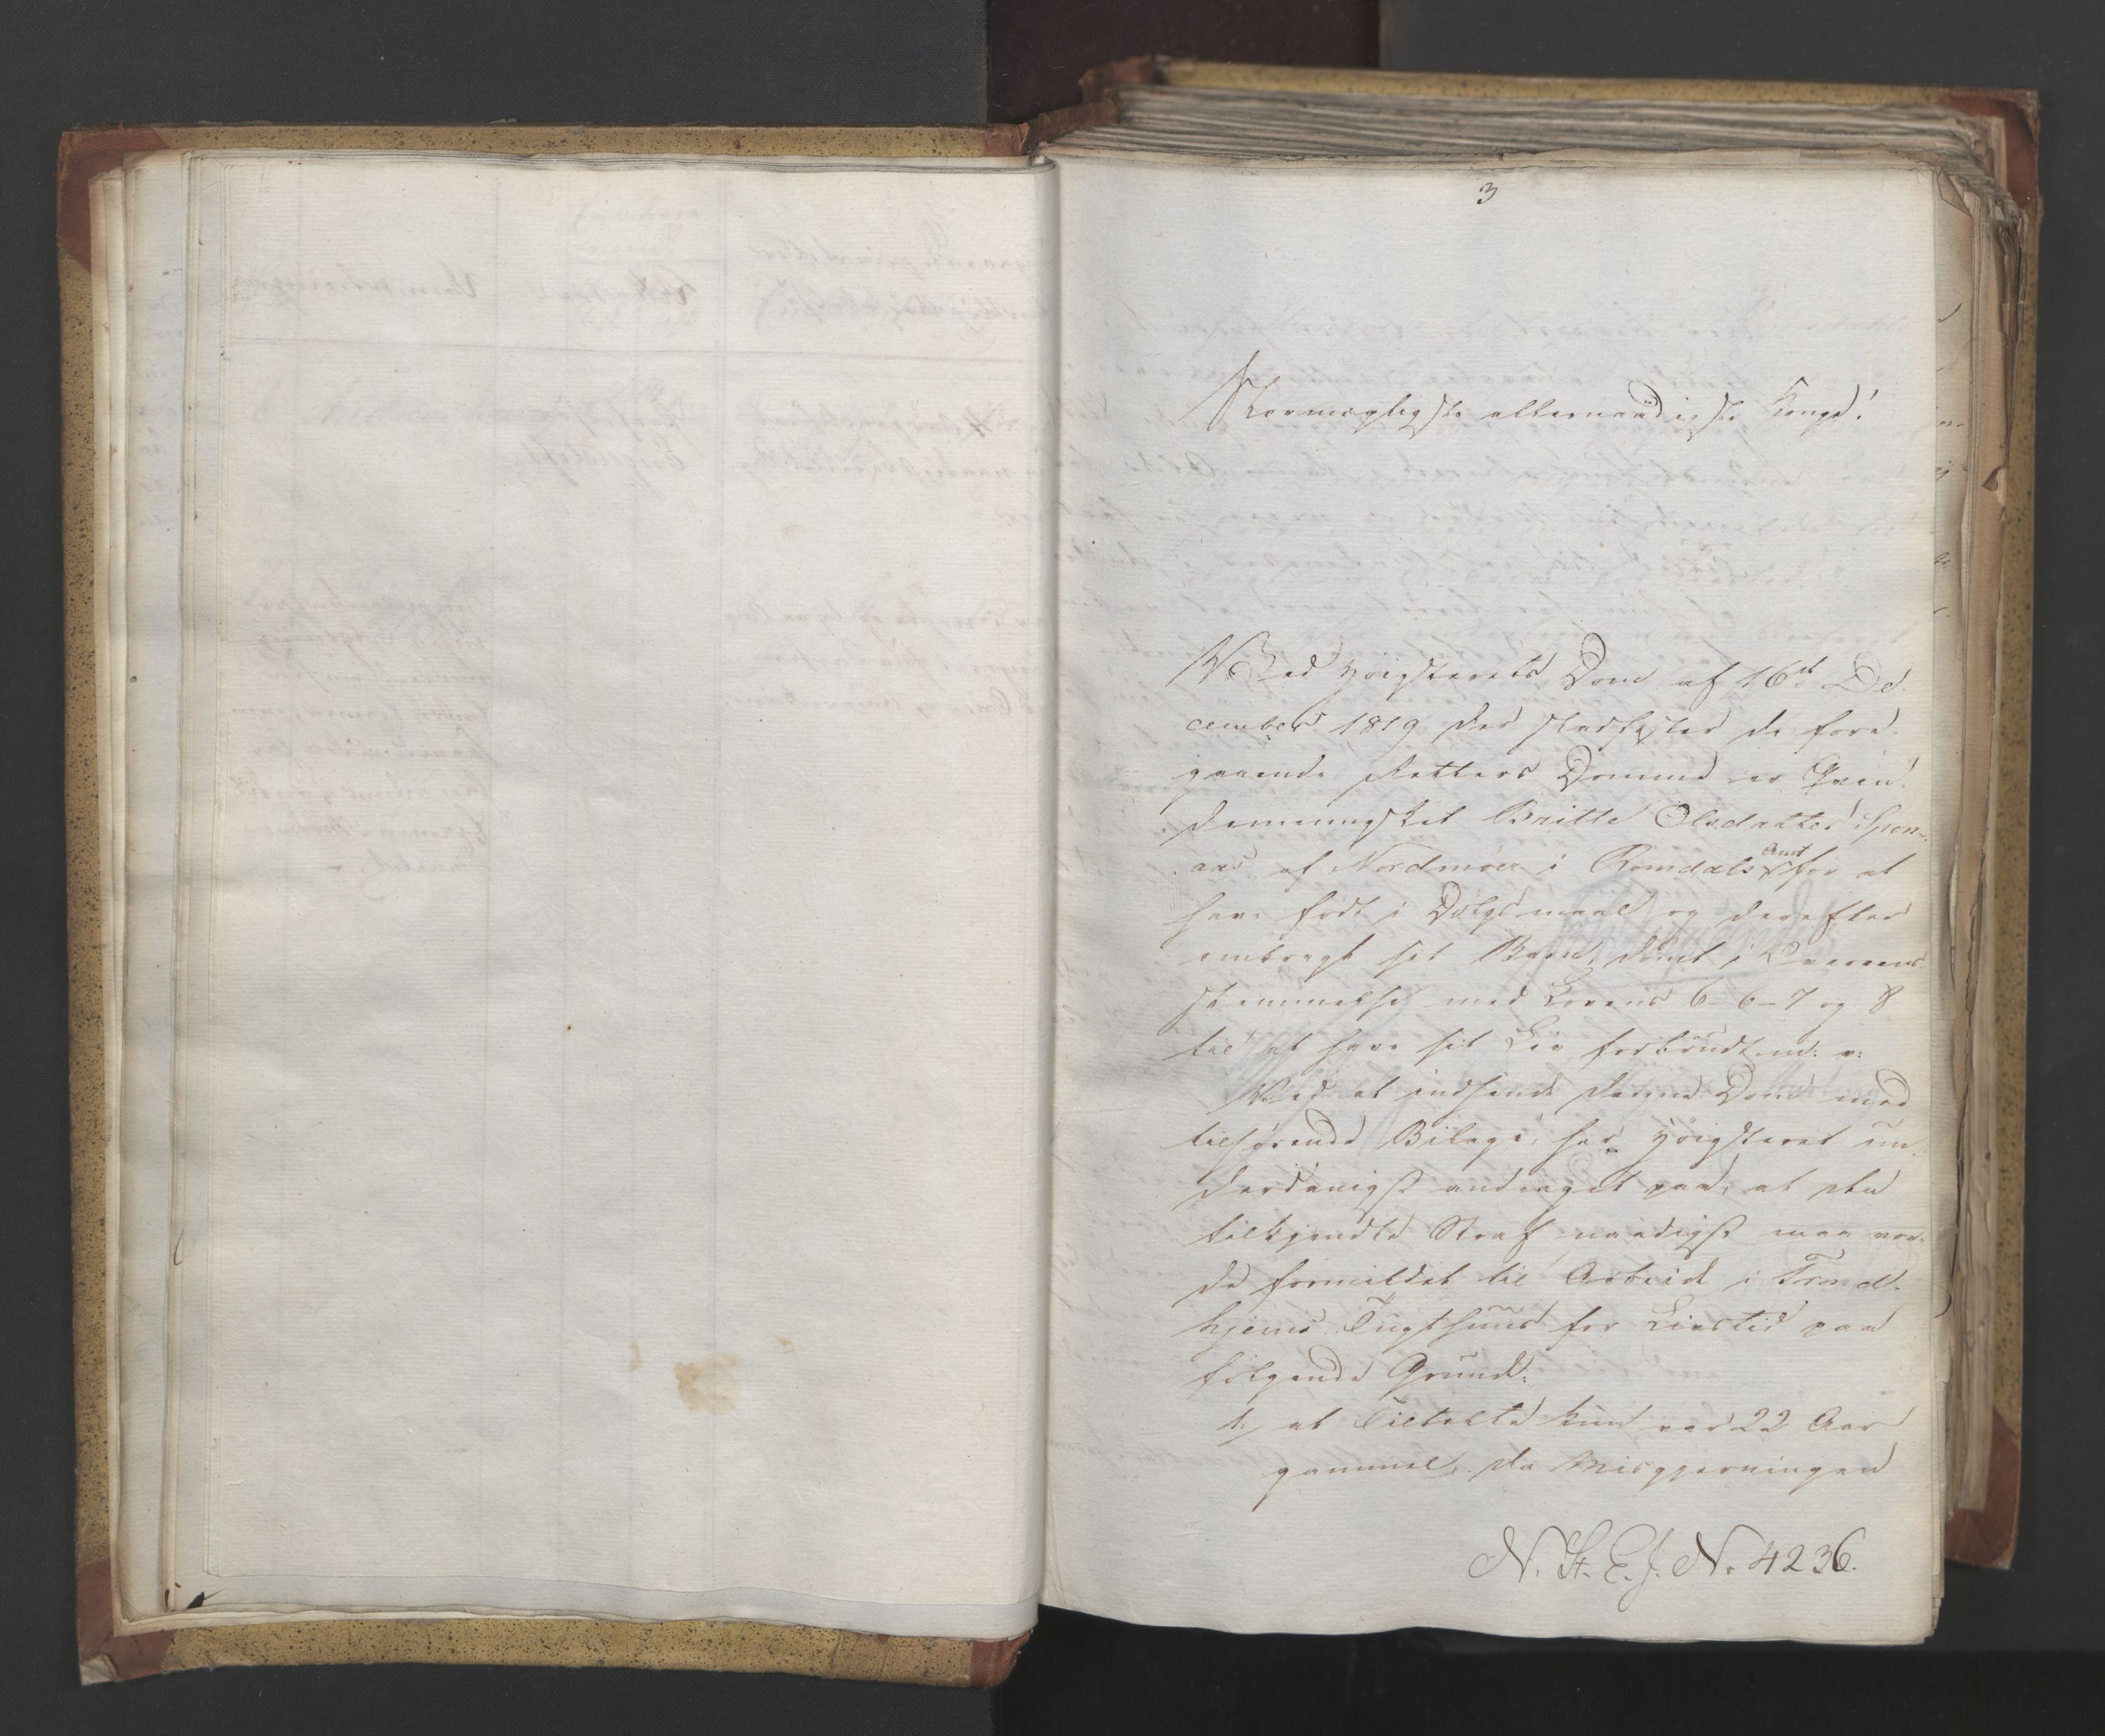 3
Stormægtigste allernaadigste Konge!
Ved Høiesterets Dom af 16de De-
cember 1819 der stadfæster de fore-
gaaende Retters Domme er Qvin-
demennesket Britte Olsdatter
aas af Nordmøer i Romsdals Amt for at
have født i Dølgsmaal og derefter
ombragt sit Barn, dømt i Overeens-
stemmelse med Lovens 6-6-7 og 8
til at have sit Liv forbrudt m: v:
Ved at indsende denne Dom med
tilhørende Bilage, har Høiesteret un-
derdanigst andraget paa, at den
tilkjendte Straf naadigst maa vor-
de formildet til Arbeid i Trond-
hjems Tugthuus for Livstid paa
følgende Grunde:
1, at Tiltalte kun var 22 Aar
gammel, da Misgjerningen
N. St. E. J. N. 4236.